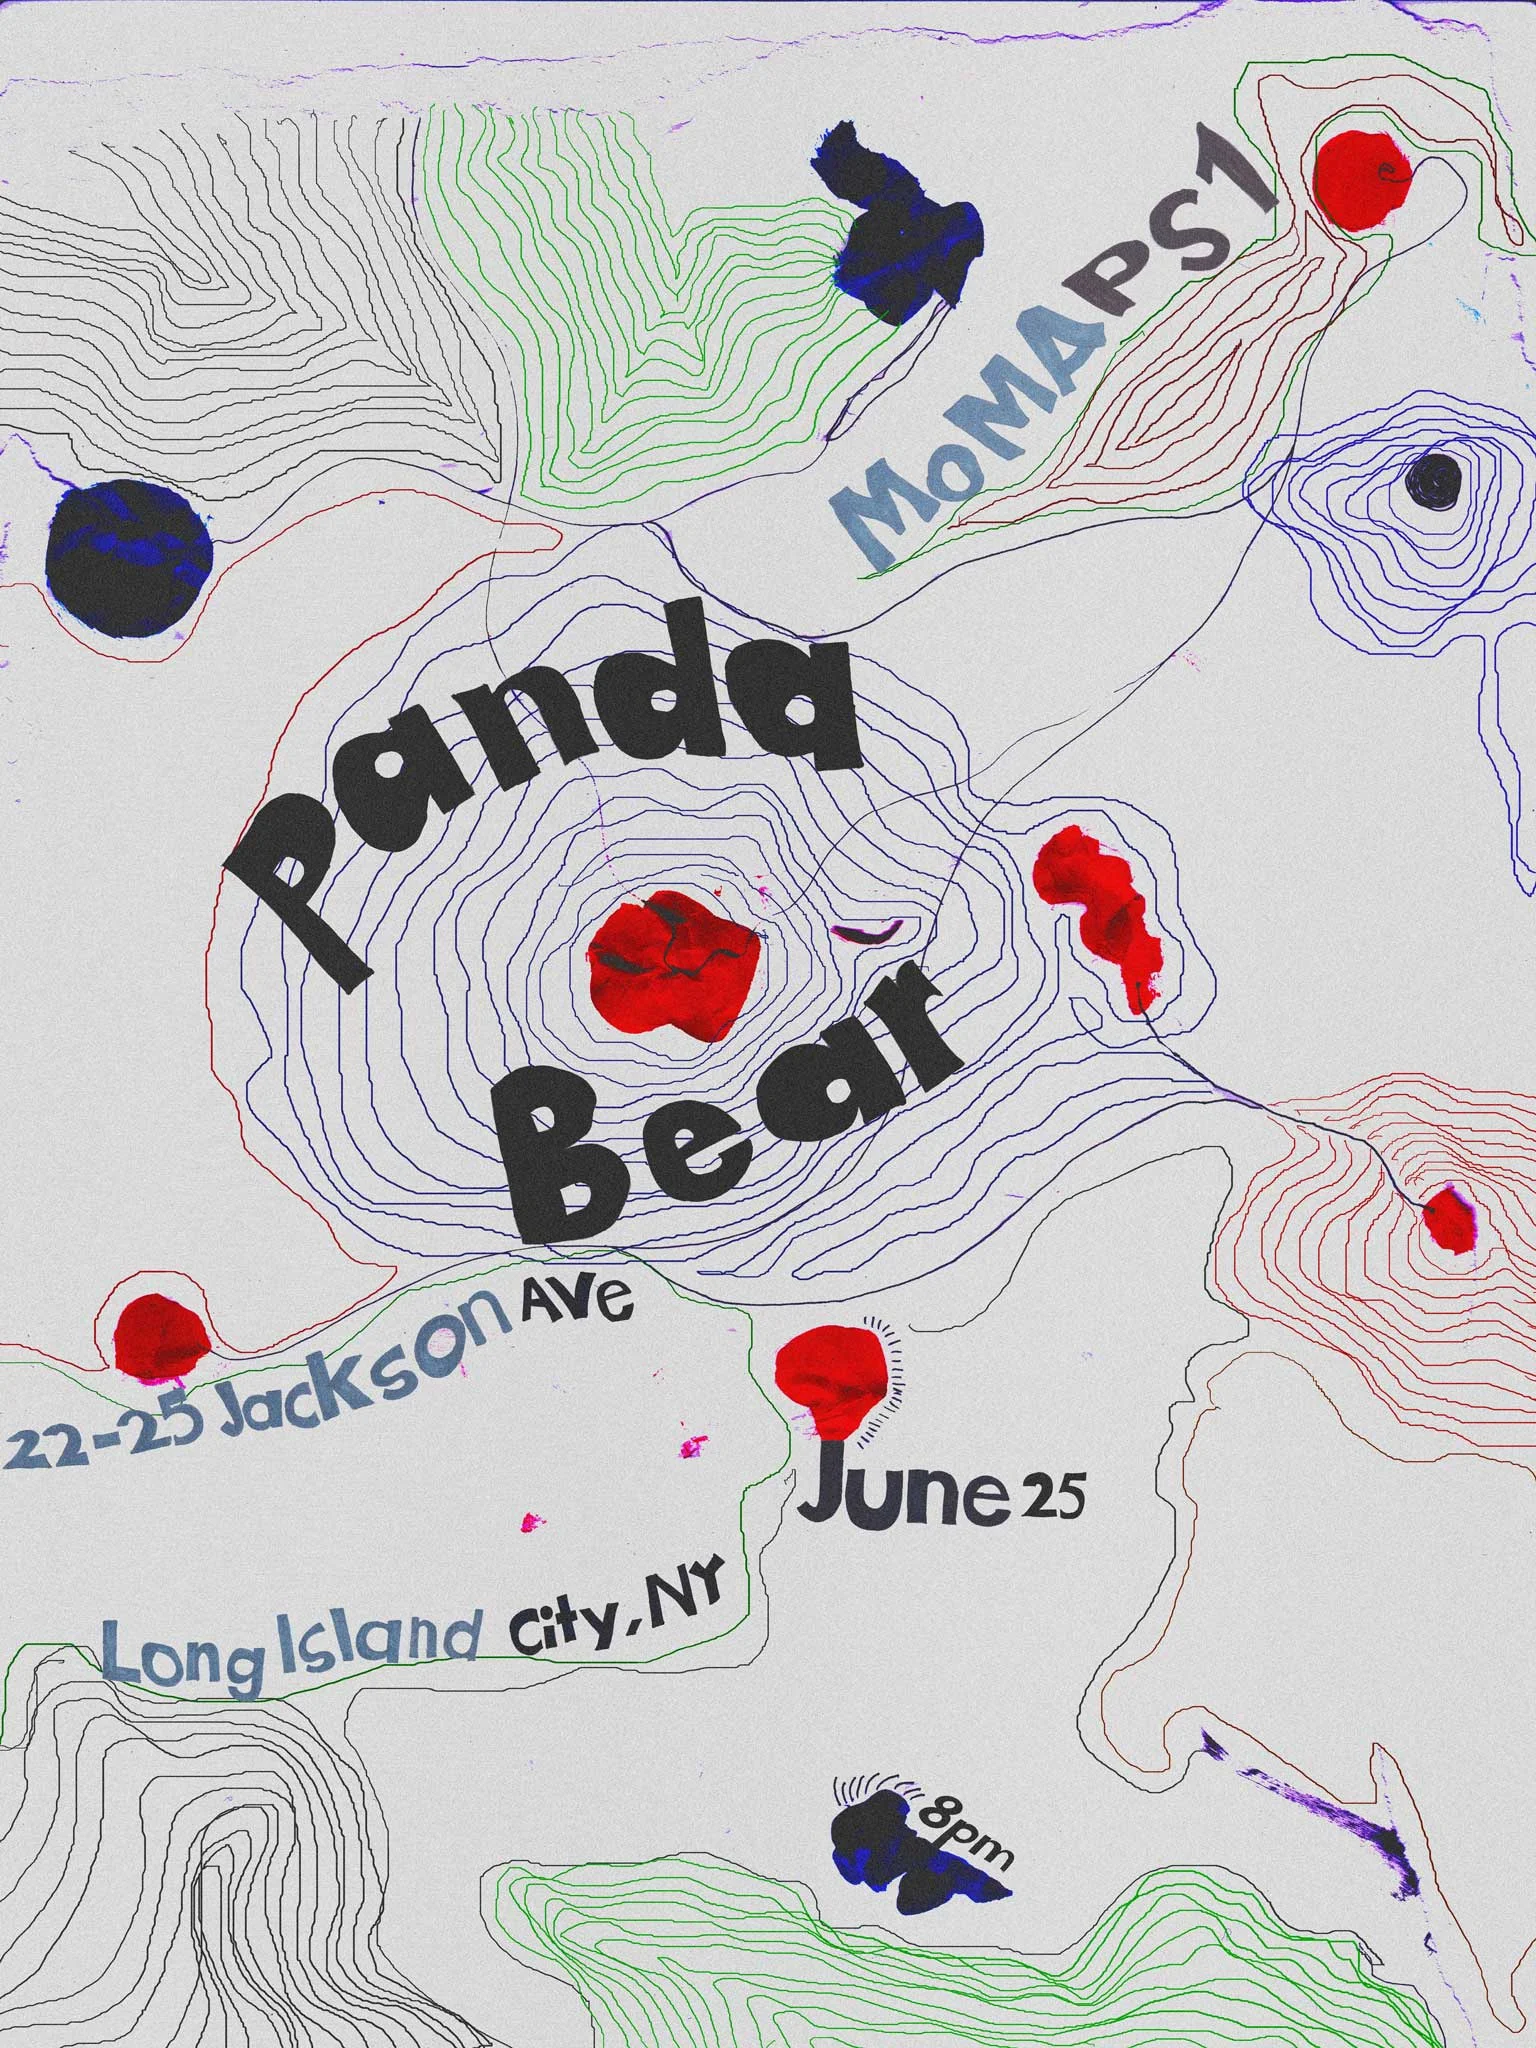 MoMAPS1
Panda
Bear
22-25 Jackson Ave
June 25
Long Island City, NY
8pm